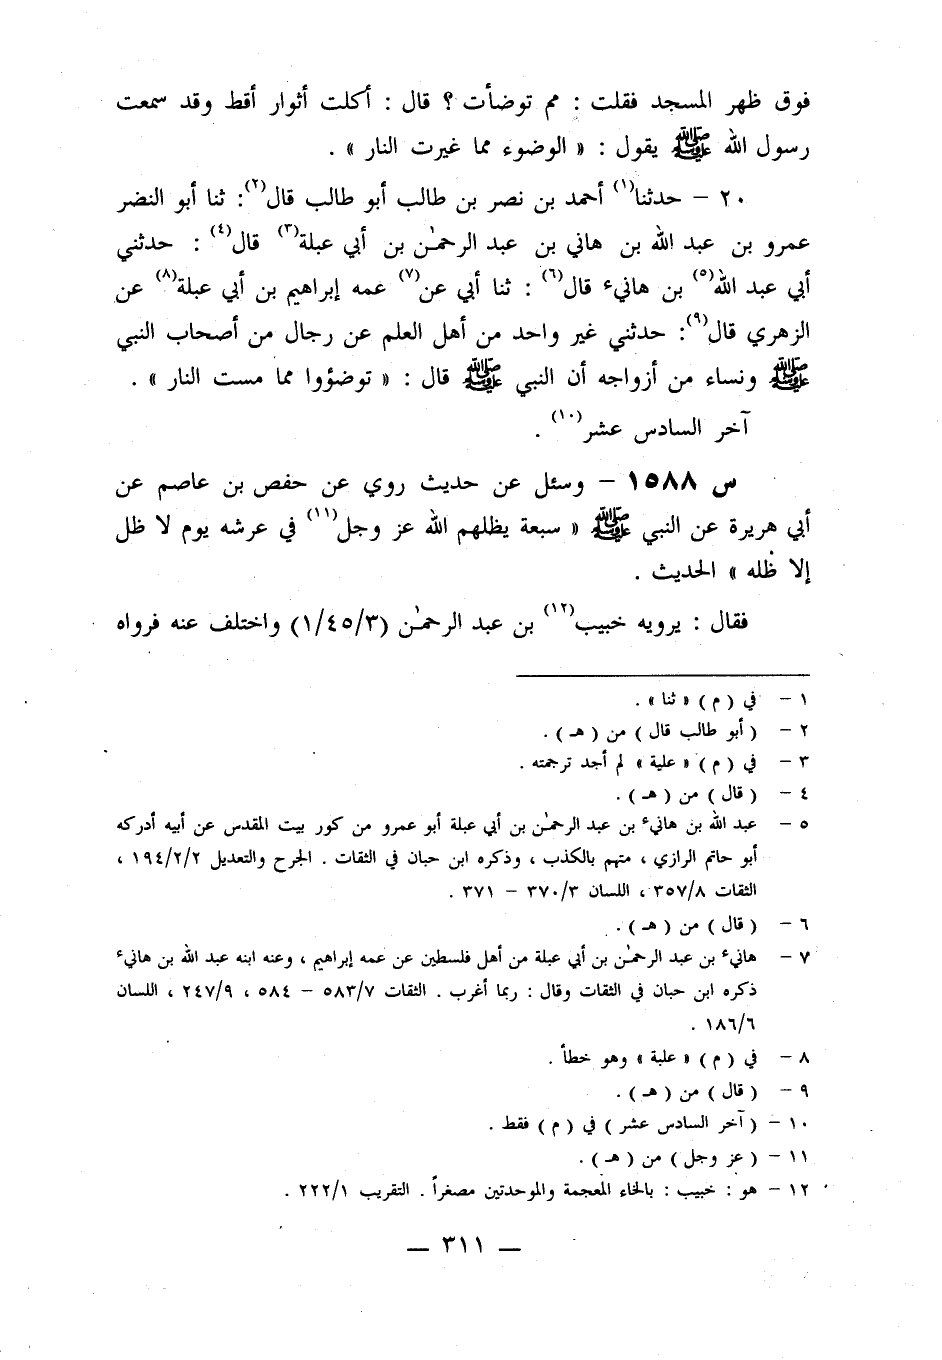 فوق ظهر المسجد فقلت : مم توضأت ؟ قال : أكلت أثوار أقط وقد سمعت
رسول الله ﷺ يقول : « الوضوء مما غيرت النار » .
٢٠ – حدثنا(١) أحمد بن نصر بن طالب أبو طالب قال(٢): ثنا أبو النضر
عمرو بن عبد الله بن هاني بن عبد الرحمٰن بن أبي عبلة(٣) قال(٤) : حدثني
أبي عبد الله(٥) بن هانيء قال(٦) : ثنا أبي عن(٧) عمه إبراهيم بن أبي عبلة(٨) عن
الزهري قال(٩): حدثني غير واحد من أهل العلم عن رجال من أصحاب النبي
ﷺ ونساء من أزواجه أن النبي ﷺ قال : « توضؤوا مما مست النار » .
آخر السادس عشر(١٠) .
س ١٥٨٨ – وسئل عن حديث روي عن حفص بن عاصم عن
أبي هريرة عن النبي ﷺ « سبعة يظلهم الله عز وجل(١١) في عرشه يوم لا ظل
إلا ظله » الحديث .
فقال : يرويه خبيب(١٢) بن عبد الرحمٰن (١/٤٥/٣) واختلف عنه فرواه
١ – في ( م ) « ثنا » .
٢ – ( أبو طالب قال ) من ( هـ ) .
٣ – في ( م ) « علية » لم أجد ترجمته .
٤ – ( قال ) من ( هـ ) .
٥ – عبد الله بن هانيء بن عبد الرحمٰن بن أبي عبلة أبو عمرو من كور بيت المقدس عن أبيه أدركه
أبو حاتم الرازي ، متهم بالكذب ، وذكره ابن حبان في الثقات . الجرح والتعديل ١٩٤/٢/٢ ،
الثقات ٣٥٧/٨ ، اللسان ٣٧٠/٣ – ٣٧١ .
٦ – ( قال ) من ( هـ ) .
٧ – هانيء بن عبد الرحمٰن بن أبي عبلة من أهل فلسطين عن عمه إبراهيم ، وعنه ابنه عبد الله بن هانيء
ذكره ابن حبان في الثقات وقال : ربما أغرب . الثقات ٥٨٣/٧ – ٥٨٤ ، ٢٤٧/٩ ، اللسان
١٨٦/٦ .
٨ – في ( م ) « علية » وهو خطأ .
٩ – ( قال ) من ( هـ ) .
١٠ – ( آخر السادس عشر ) في ( م ) فقط .
١١ – ( عز وجل ) من ( هـ ) .
١٢ – هو : خبيب : بالخاء المعجمة والموحدتين مصغراً . التقريب ٢٢٢/١ .
— ٣١١ —